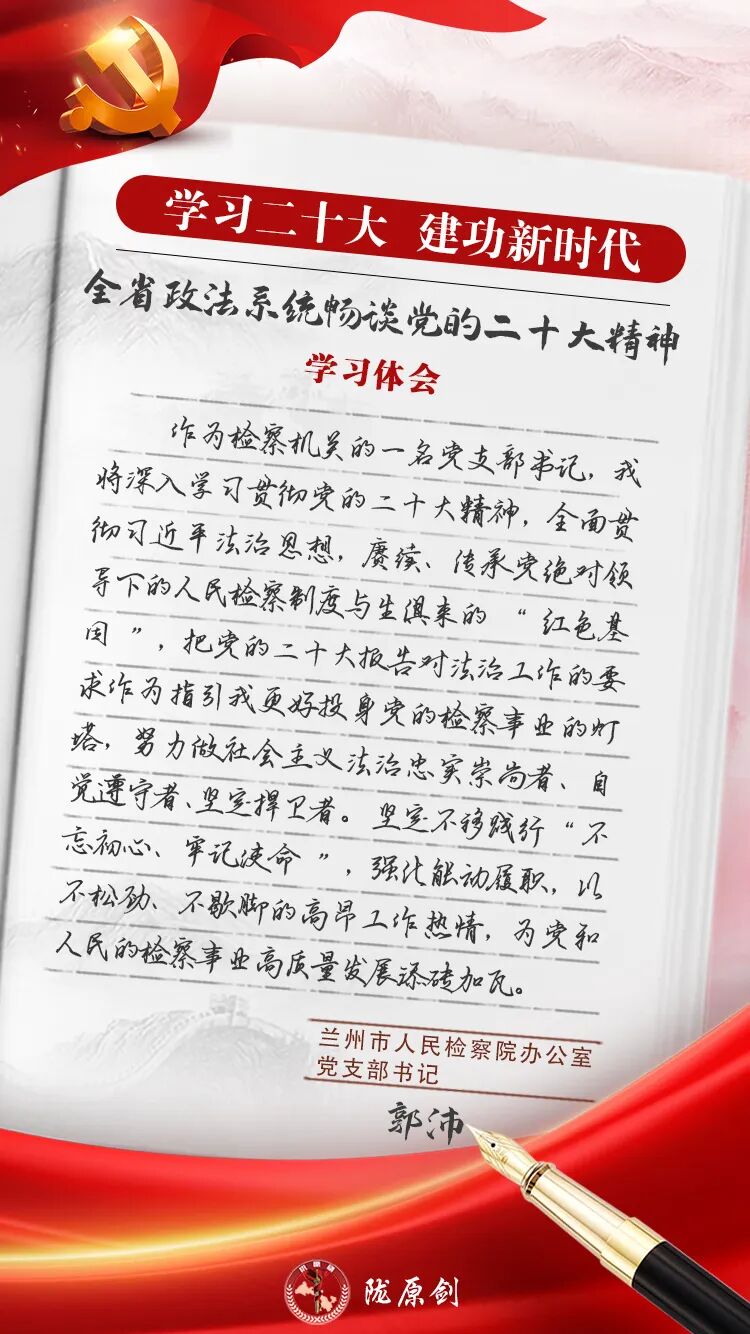 学习二十大 建功新时代
全省政法系统畅谈党的二十大精神
学习体会
作为检察机关的一名党支部书记，我
将深入学习贯彻党的二十大精神，全面贯
彻习近平法治思想，赓续、传承党绝对领
导下的人民检察制度与生俱来的“红色基
因”，把党的二十大报告对法治工作的要
求作为指引我更好投身党的检察事业的灯
塔，努力做社会主义法治忠实崇尚者、自
觉遵守者、坚定捍卫者。坚定不移践行“不
忘初心、牢记使命”，强化能动履职，以
不松劲、不歇脚的高昂工作热情，为党和
人民的检察事业高质量发展添砖加瓦。
兰州市人民检察院办公室
党支部书记
郭沛
陇原剑